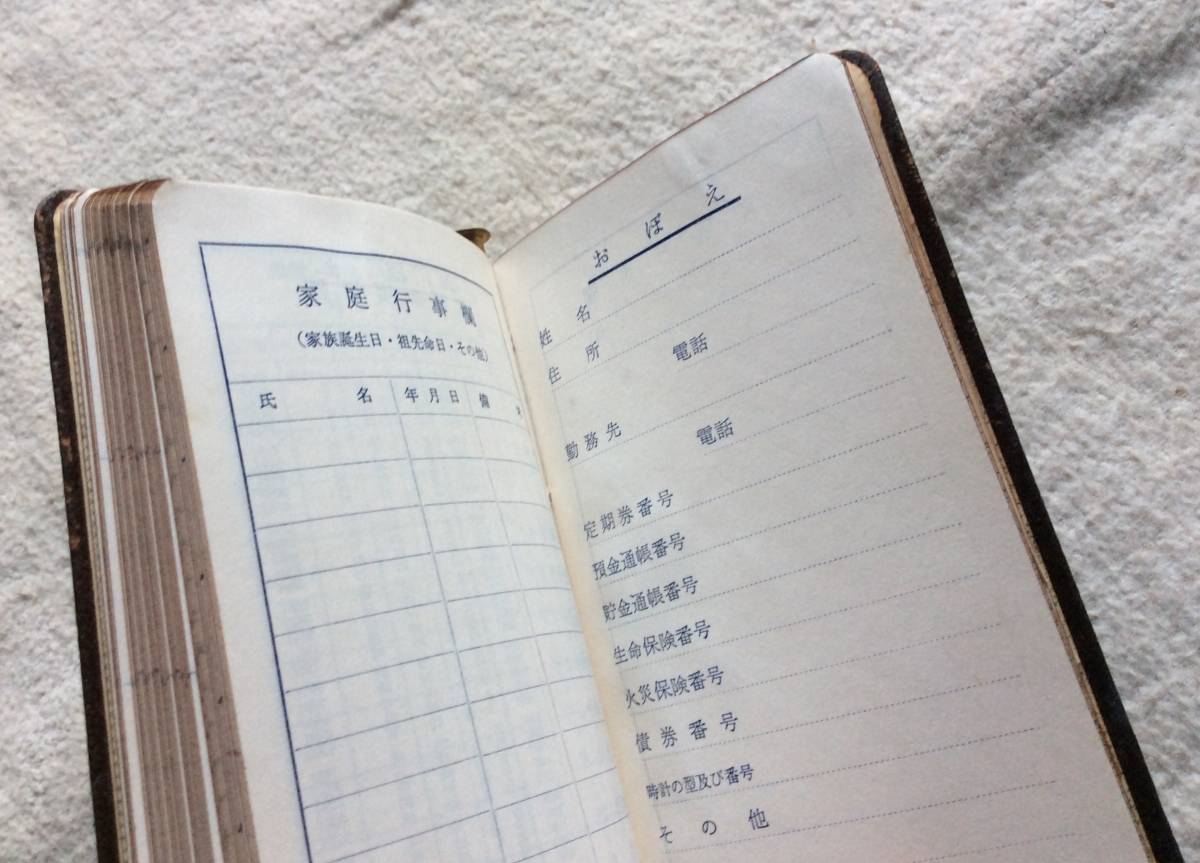 家庭行事欄
(家族誕生日・祖先命日・その他)
氏名 年月日 備
おぼえ
姓名
住所 電話
勤務先 電話
定期券番号
預金通帳番号
貯金通帳番号
生命保険番号
火災保険番号
債券番号
時計の型及び番号
その他